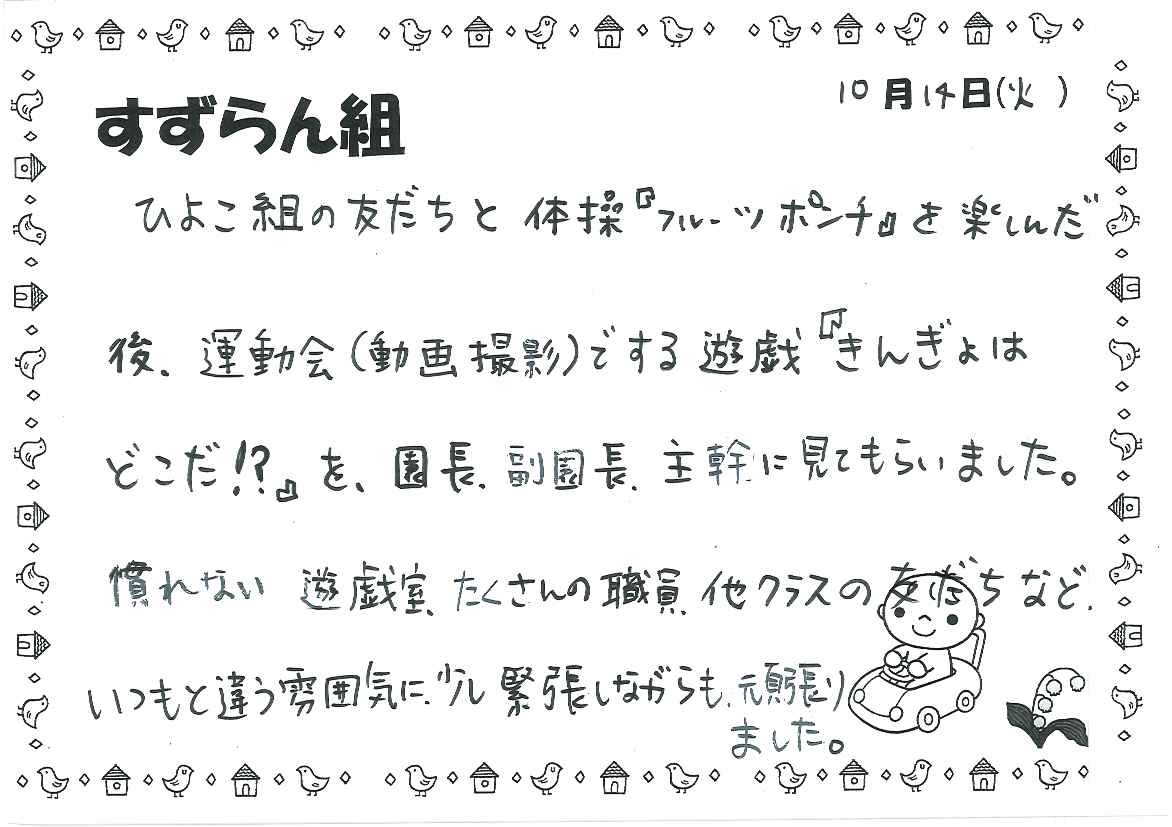 10月14日(火)
すずらん組
ひよこ組の友だちと体操『フルーツポンチ』を楽しんだ
後、運動会(動画撮影)でする遊戯『きんぎょは
どこだ!?』を、園長、副園長、主幹に見てもらいました。
慣れない遊戯室、たくさんの職員、他クラスの友だちなど、
いつもと違う雰囲気に、少し緊張しながらも、頑張り
ました。